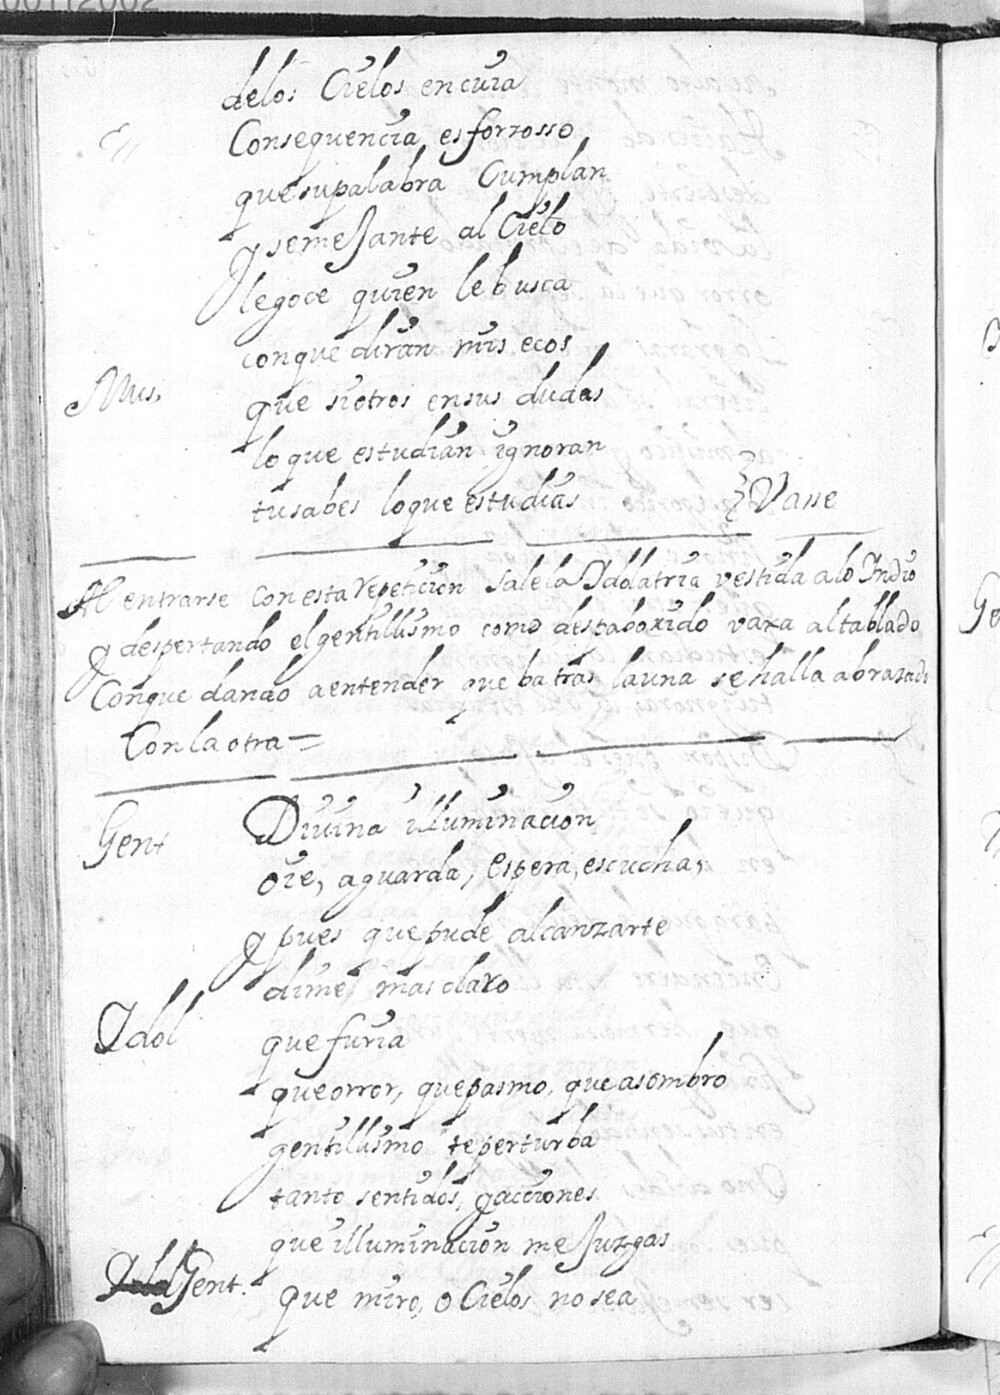 delos Cielos encuia
Consequencia, es forzosso
que su palabra Cumplan
y semeJante al Cielo
le goce quien le busca
conque diran mis ecos
Mus. que si otros en sus dudas
lo que estudian ygnoran
tu sabes lo que estudias Vasse
Al entrarse con esta Repeticion Sale la Idolatria vestida a lo Indio
y despertando el gentillismo como despaborido vaxa al tablado
Conque dando a entender que ba tras la una se halla abrasado
Con la otra =
Gent Divina illuminacion
oie, aguarda, espera, escucha,
y pues que pude alcanzarte
dime mas claro
Idol que furia
que orror, que pasmo, que asombro
gentillismo te perturba
tanto sentidos, y acciones
que illuminacion me Juzgas
Gent. Que miro, o Cielos no sea